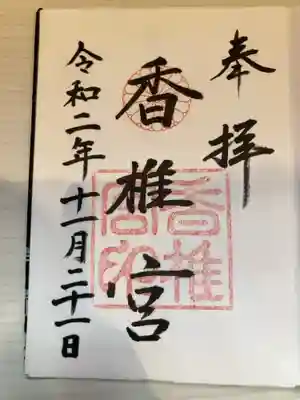 奉拝
香椎宮
令和二年十一月二十一日
香椎宮印